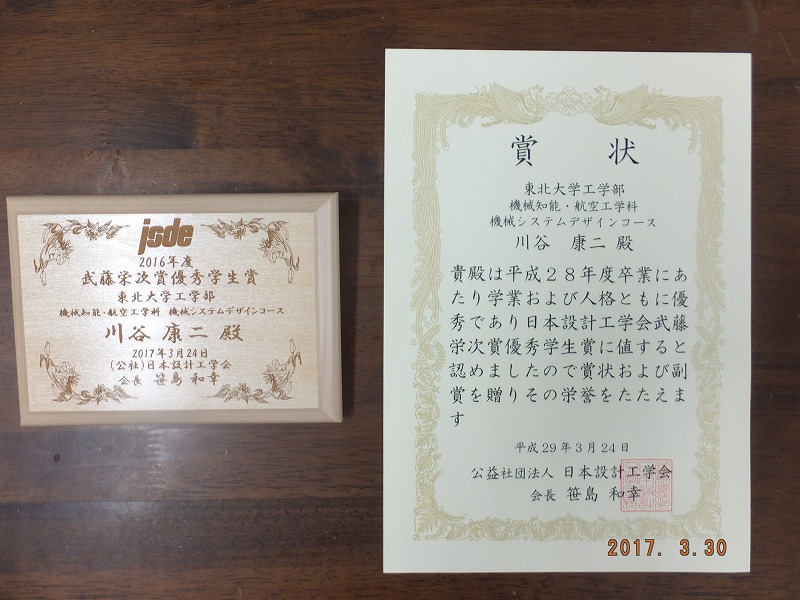 jsde
2016年度
武藤栄次賞優秀学生賞
東北大学工学部
機械知能・航空工学科 機械システムデザインコース
川谷 康二 殿
2017年3月24日
(公社)日本設計工学会
会長 笹島 和幸
賞状
東北大学工学部
機械知能・航空工学科
機械システムデザインコース
川谷 康二 殿
貴殿は平成28年度卒業にあ
たり学業および人格ともに優
秀であり日本設計工学会武藤
栄次賞優秀学生賞に値すると
認めましたので賞状および副
賞を贈りその栄誉をたたえま
す
平成29年3月24日
公益社団法人 日本設計工学会
会長 笹島 和幸
2017. 3.30